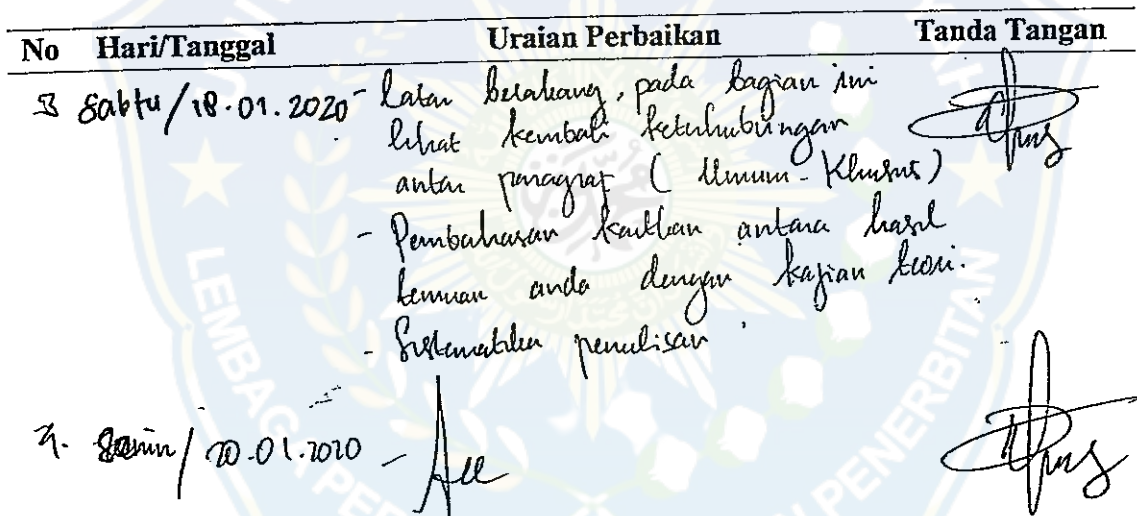 No Hari/Tanggal Uraian Perbaikan Tanda Tangan
3 Sabtu/18.01.2020 - Latar belakang, pada bagian ini
lihat kembali keterhubungan
antar paragraf (Umum - Khusus)
- Pembahasan kaitkan antara hasil
temuan anda dengan kajian teori.
- Sistematika penulisan
4. Senin/20.01.2020 - Acc
LEMBAGA PER
N PENERBITAN